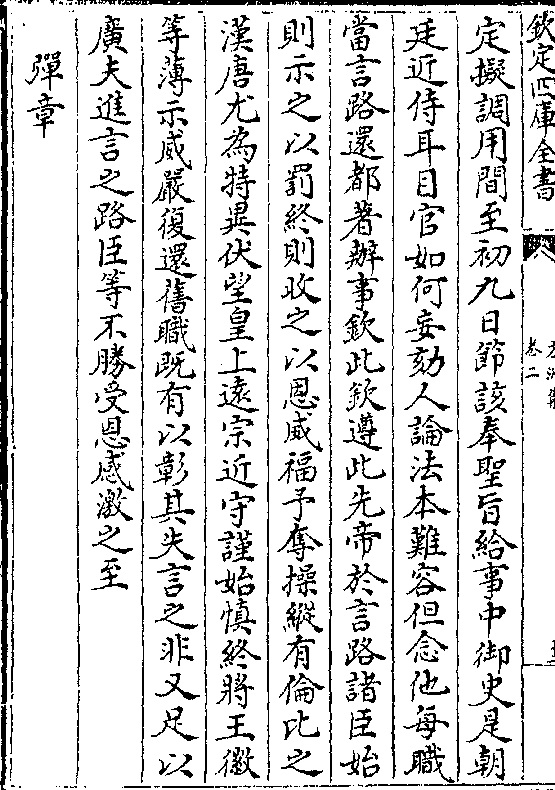 欽定四庫全書
卷二
定擬調用間至初九日節該奉聖旨給事中御史是朝
廷近侍耳目官如何妄劾人論法本難容但念他每職
當言路還都著辦事欽此欽遵此先帝於言路諸臣始
則示之以罰終則收之以恩威福予奪操縱有倫比之
漢唐尤為特異伏望皇上遠宗近守謹始慎終將王徽
等薄示威嚴復還舊職既有以彰其失言之非又足以
廣夫進言之路臣等不勝受恩感激之至
彈章